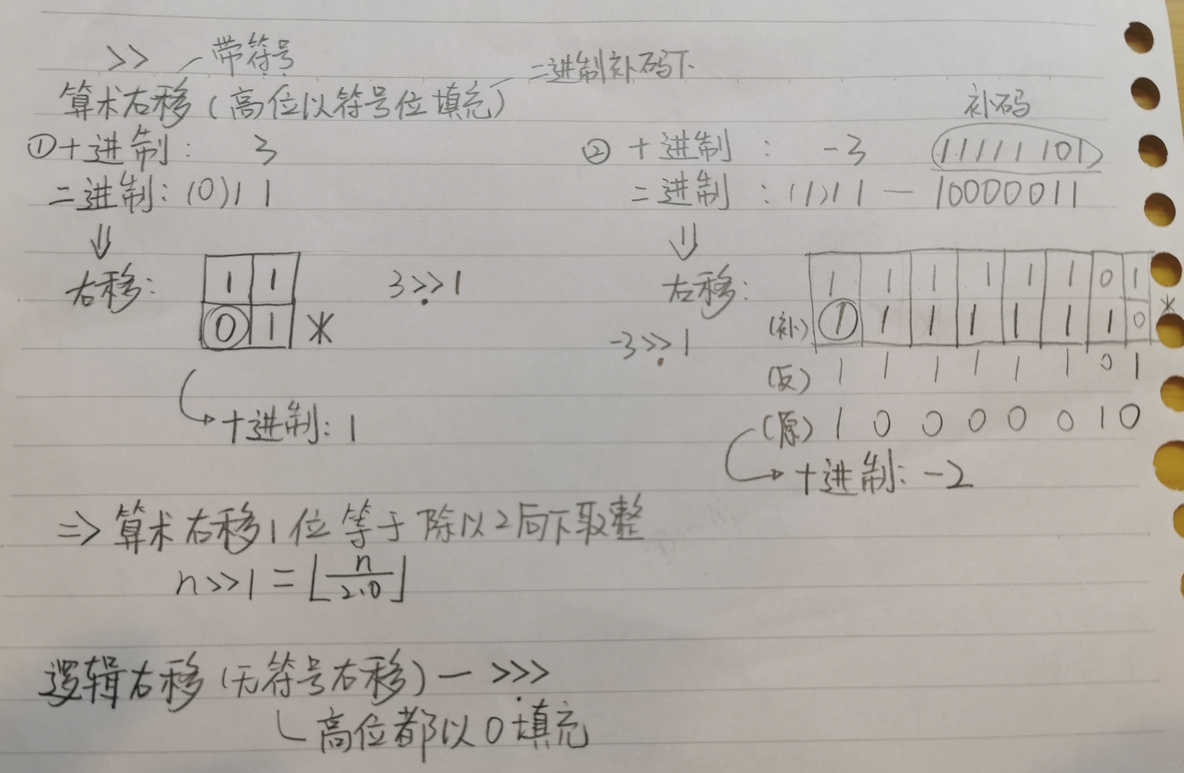 >> 带符号
二进制补码下
算术右移(高位以符号位填充)
①十进制: 3
二进制:(0)11
⇓
右移:
1 1
0 1 *
3>>1
十进制:1
② 十进制 : -3
补码
11111101
二进制 :(1)11 — 10000011
⇓
右移:
1 1 1 1 1 1 0 1
(补) 1 1 1 1 1 1 1 0 *
-3>>1
(反) 1 1 1 1 1 1 0 1
(原) 1 0 0 0 0 0 1 0
十进制:-2
=> 算术右移1位等于除以2向下取整
n>>1 = ⌊n/2.0⌋
逻辑右移(无符号右移)— >>>
高位都以0填充